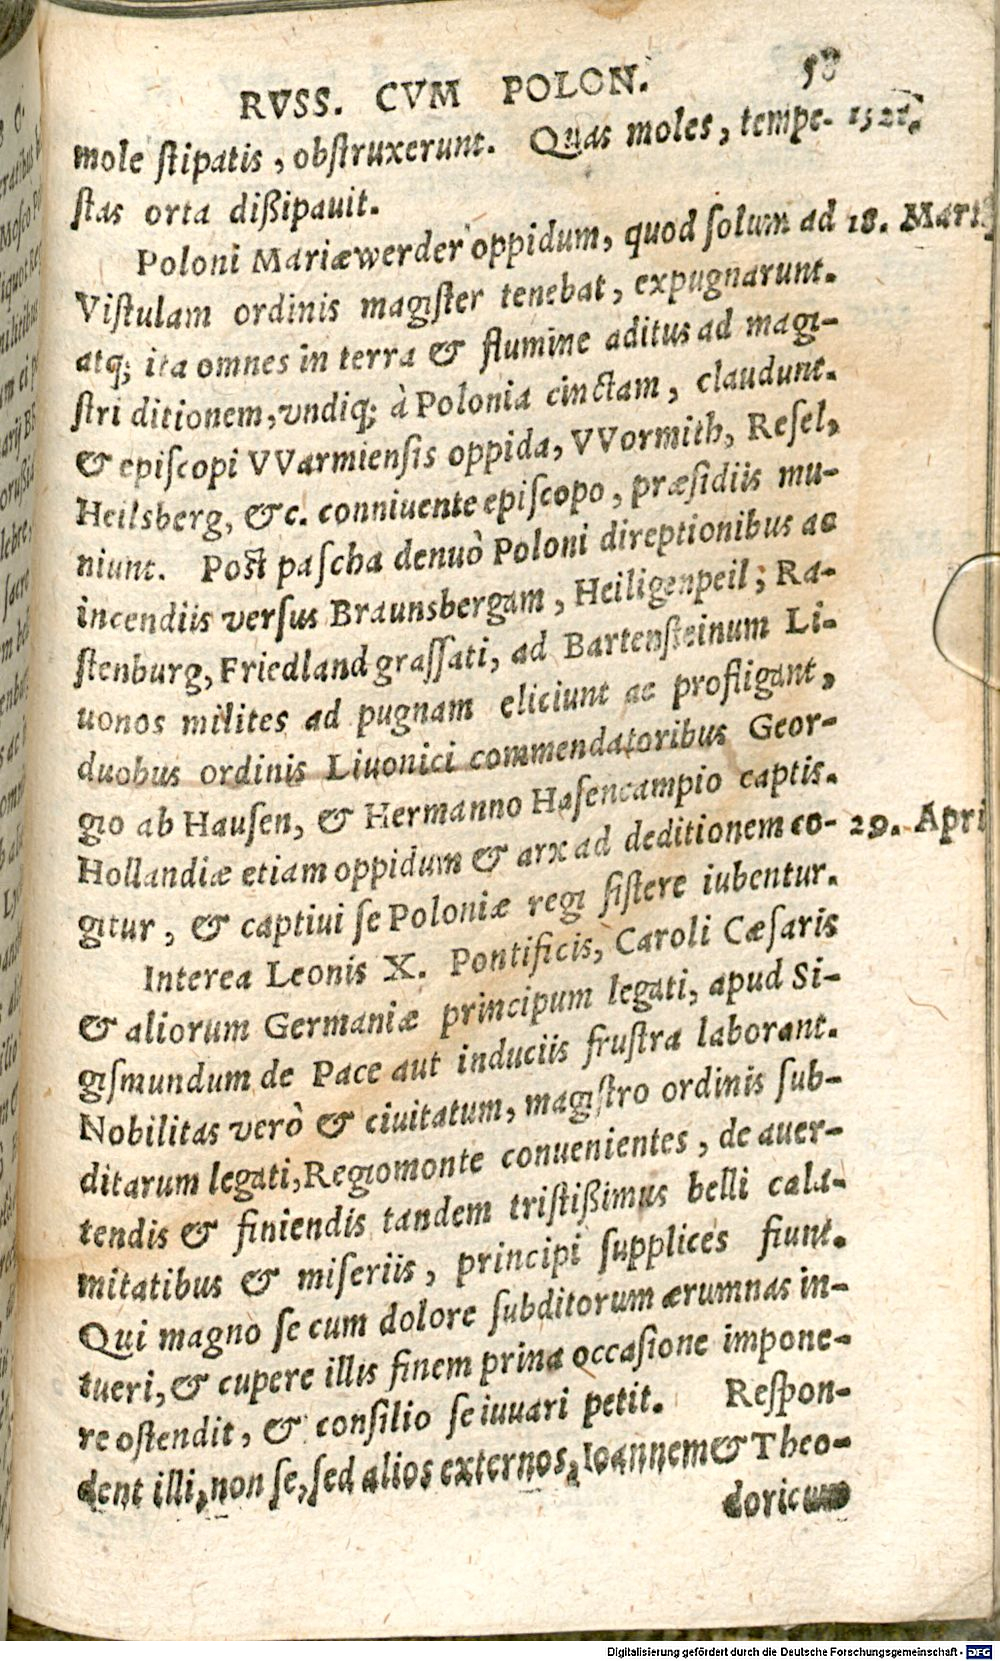 RVSS. CVM POLON. 58
mole ſtipatis, obſtruxerunt. Quas moles, tempe- 1521.
ſtas orta dißipauit.
Poloni Mariæwerder oppidum, quod ſolum ad 18. Martij
Viſtulam ordinis magiſter tenebat, expugnarunt.
atq; ita omnes in terra & flumine aditus ad magi-
ſtri ditionem, vndiq; à Polonia cinctam, claudunt.
& epiſcopi VVarmienſis oppida, VVormith, Reſel,
Heilsberg, &c. conniuente epiſcopo, præſidiis mu-
niunt. Poſt paſcha denuò Poloni direptionibus ac
incendiis verſus Braunsbergam, Heiligenpeil; Ra-
ſtenburg, Friedland graſſati, ad Bartenſteinum Li-
uonos milites ad pugnam eliciunt ac profligant,
duobus ordinis Liuonici commendatoribus Geor-
gio ab Hauſen, & Hermanno Haſencampio captis.
Hollandiæ etiam oppidum & arx ad deditionem co- 29. Apri
gitur, & captiui ſe Poloniæ regi ſiſtere iubentur.
Interea Leonis X. Pontificis, Caroli Cæſaris
& aliorum Germaniæ principum legati, apud Si-
giſmundum de Pace aut induciis fruſtra laborant.
Nobilitas verò & ciuitatum, magiſtro ordinis ſub-
ditarum legati, Regiomonte conuenientes, de auer-
tendis & finiendis tandem triſtißimus belli cala-
mitatibus & miſeriis, principi ſupplices fiunt.
Qui magno ſe cum dolore ſubditorum ærumnas in-
tueri, & cupere illis finem prima occaſione impone-
re oſtendit, & conſilio ſe iuuari petit. Reſpon-
dent illi, non ſe, ſed alios externos, Ioannem & Theo-
doricum
Digitalisierung gefördert durch die Deutsche Forschungsgemeinschaft - DFG